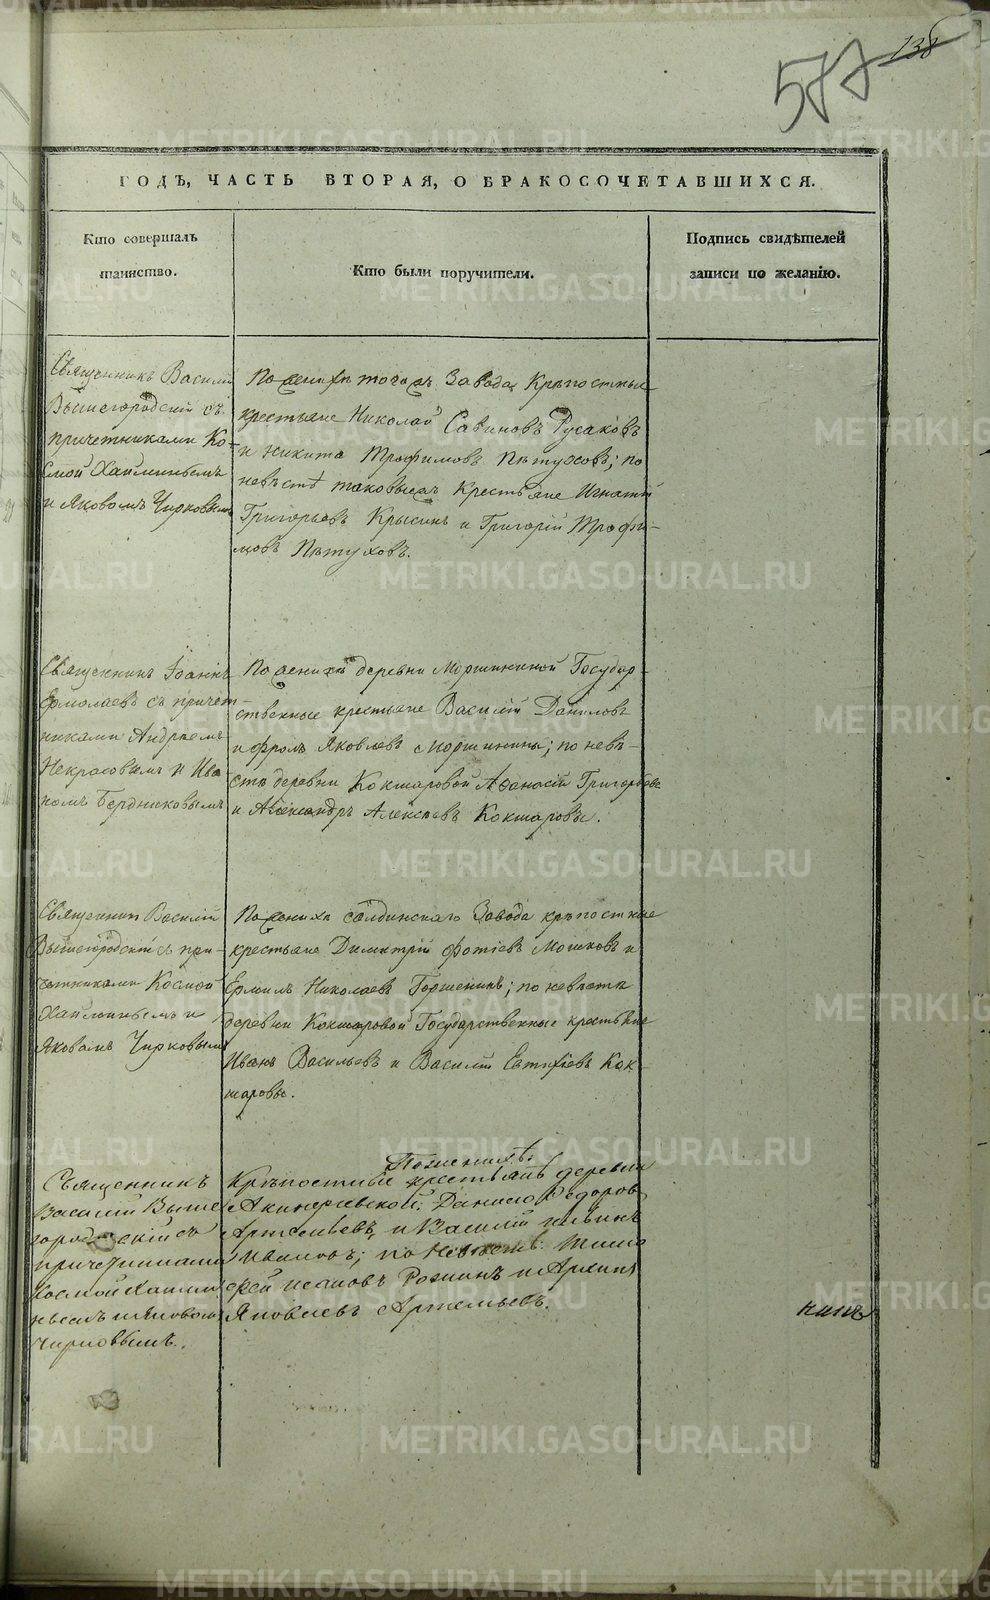 138
577
ГОДЪ, ЧАСТЬ ВТОРАЯ, О БРАКОСОЧЕТАВШИХСЯ.
Кто совершалъ
таинство.
Кто были поручители.
Подпись свидѣтелей
записи по желанію.
Священникъ Василій
Вышегородскій съ
причетниками Ко-
смой Хаймннымъ
и Яковомъ Чирковымъ
По женихѣ того жъ Завода Крѣпостные
крестьяне Николай Савиновъ Русаковъ
и Никита Трофимовъ Пѣтуховъ; по
невѣстѣ таковыежъ Крестьяне Игнатій
Григорьевъ Крысинъ и Григорій Трофи-
мовъ Пѣтуховъ.
Священникъ Іоаннъ
Ермолаевъ съ причет-
никами Андреемъ
Некрасовымъ и Ива
номъ Бердниковымъ
По женихѣ деревни Моршининой Государ-
ственные крестьяне Василій Даниловъ
и Фролъ Яковлевъ Моршинины; по невѣ-
стѣ деревни Кокшаровой Афанасій Григорьевъ
и Александръ Алексѣевъ Кокшаровы.
Священникъ Василій
Вышегородскій съ при-
четниками Космой
и
Яковомъ Чирковымъ
По женихѣ салдинскаго Завода крѣпостные
крестьяне Димитрій Фотіевъ Мошковъ и
Ермилъ Николаевъ Горшенинъ; по невѣстѣ
деревни Кокшаровой Государственные крестьяне
Иванъ Васильевъ и Василій Евтихіевъ Кок-
шаровы.
Священникъ
Василій Выше
городскій съ
причетниками
Космой
и Яковомъ
Чирковымъ.
По женихѣ:
Крѣпостные крестьяне деревни
Акинфіевской: Данило Ѳедоровъ
Артемьевъ, и Василій Ильинъ
Ивановъ; по невѣстѣ: Тимо
фей Исаковъ и Архипъ
Яковлевъ Артемьевъ.
METRIKI.GASO-URAL.RU